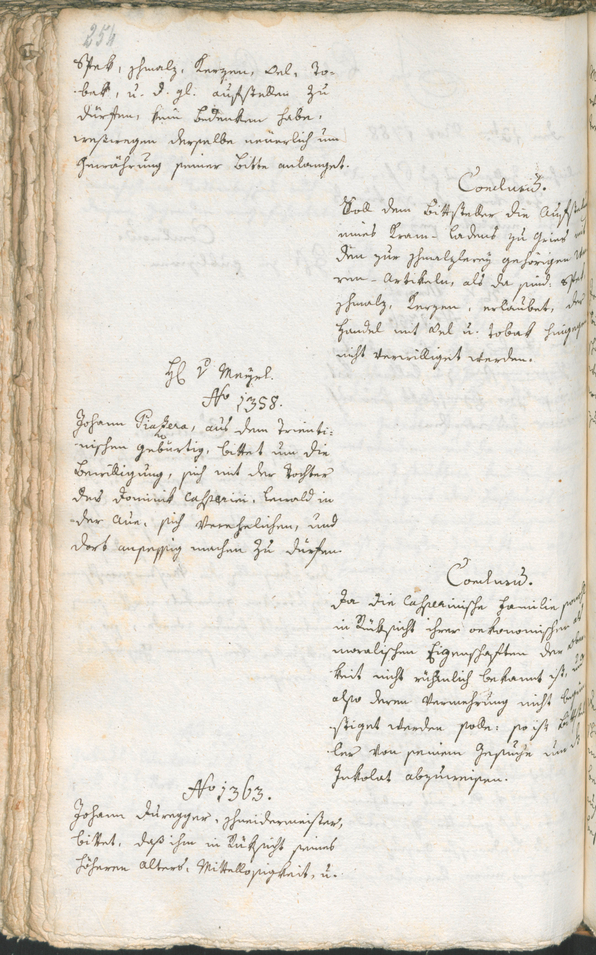 254
Spek, schmalz, Kerzen, Oel, To-
bak, u. d. gl. aufstellen zu
dürfen, kein Bedenken habe,
weswegen derselbe neuerlich um
Gewährung seiner Bitte anlanget.
Conclusū.
Soll dem Bittsteller die Aufst
eines Kram-Ladens zu Gries mit
den zur schmalzlerey gehörigen
ren-Artikeln, als da sind: Spek
schmalz, Kerzen, erlaubet, der
Handel mit Oel u. Tobak hingegen
nicht verwilliget werden.
H v Mayrl.
No 1358.
Johann Piazera, aus dem Trienti-
nischen gebürtig, bittet um die
Bewilligung, sich mit der Tochter
des Dominik Casparini, in
der Aue, sich verehelichen, und
dort ansessig machen zu dürfen.
Conclusū.
Da die Casparinische Familie
in Rüksicht ihrer oekonomischen als
moralischen Eigenschaften der
keit nicht rühmlich bekannt ist, und
also deren Vermehrung nicht
stiget werden solle: so ist Bittstel
ler von seinem Gesuche um das
Inkolat abzuweisen.
No 1363.
Johann Duregger, schneidermeister,
bittet, daß ihm in Rüksicht seines
höheren Alters, Mittellosigkeit, u.